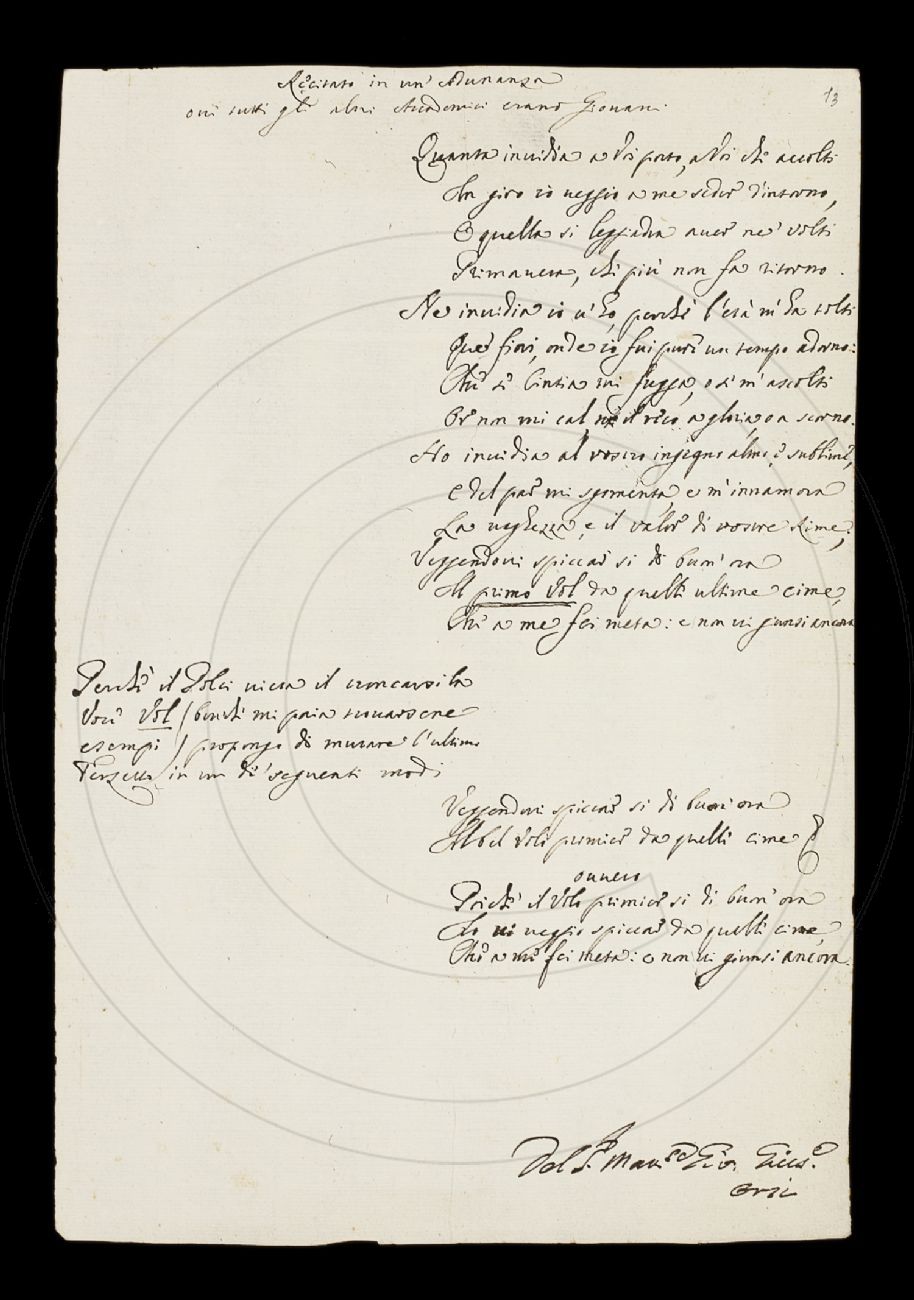 Recitato in un' Adunanza
13
ove tutti gli altri Accademici erano Giovani
Quanta invidia a Voi porto, a Voi che accolti
In giro io veggio a me seder d'intorno,
E quella sì leggiadra aver ne' volti
Primavera, che più non fa ritorno.
Ne invidia io v'ho, perchè l'età m'ha tolti
Que' fiori, onde io fui pure un tempo adorno:
Che se Cintia mi fugga, o se m'ascolti
Or non mi cal, nè il reco a gloria, o a scorno.
Ho invidia al vostro ingegno almo, e sublime,
E del par mi sgomenta, e m'innamora
La vaghezza, e il valor di vostre Rime;
Veggendovi spiccar sì di buon' ora
Il primo Vol da quelle ultime cime,
Che a me fei meta: e non vi giunsi ancora
Perchè il Dolci vieta il troncarsi la
Voce Vol (benchè mi paia trovarsene
esempi) propongo di mutare l'ultimo
Terzetto in un de' seguenti modi
Veggendovi spiccar sì di buon ora
Il bel Volo primier da quelle cime
ovvero
Poichè il Volo primier sì di buon' ora
Io vi veggio spiccar da quelle cime,
Che a me fei meta: e non vi giunsi ancora.
Del Sr. March.e Gio. Gius.e
Orsi